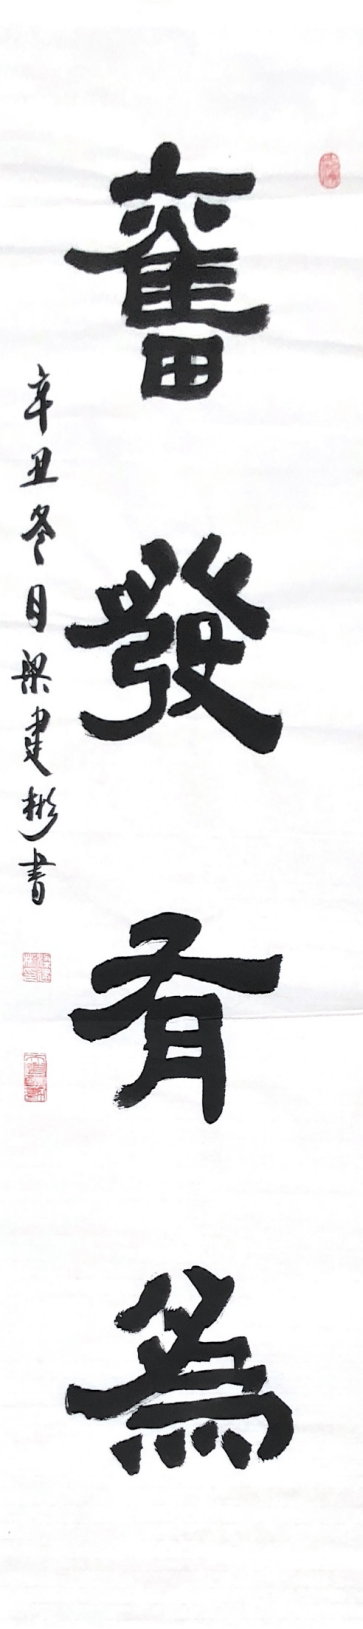 奮發有為
辛丑冬月梁建彬書